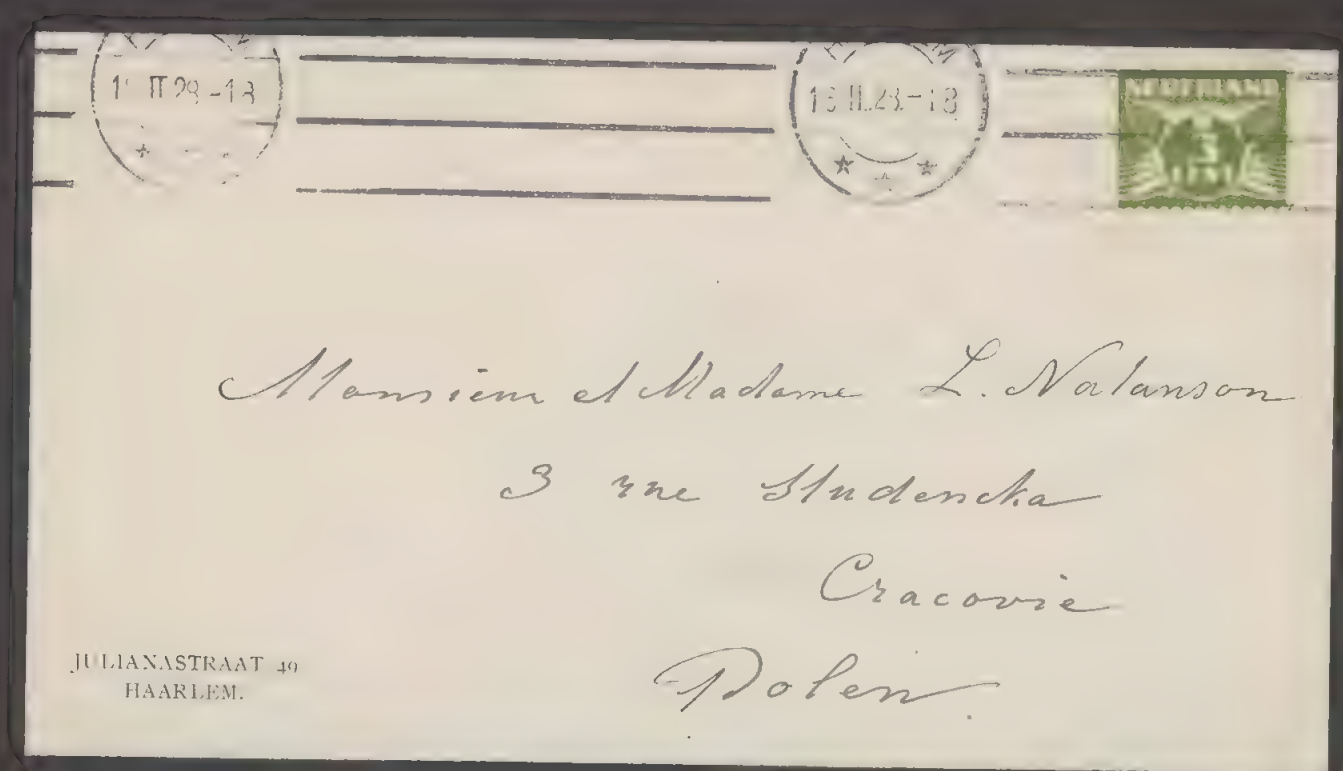 II 28 -18
II.28.-18
NEDERLAND
3
CENT
Monsieur et Madame L. Natanson
3 rue Studencka
Cracovie
Polen.
JULIANASTRAAT 49
HAARLEM.